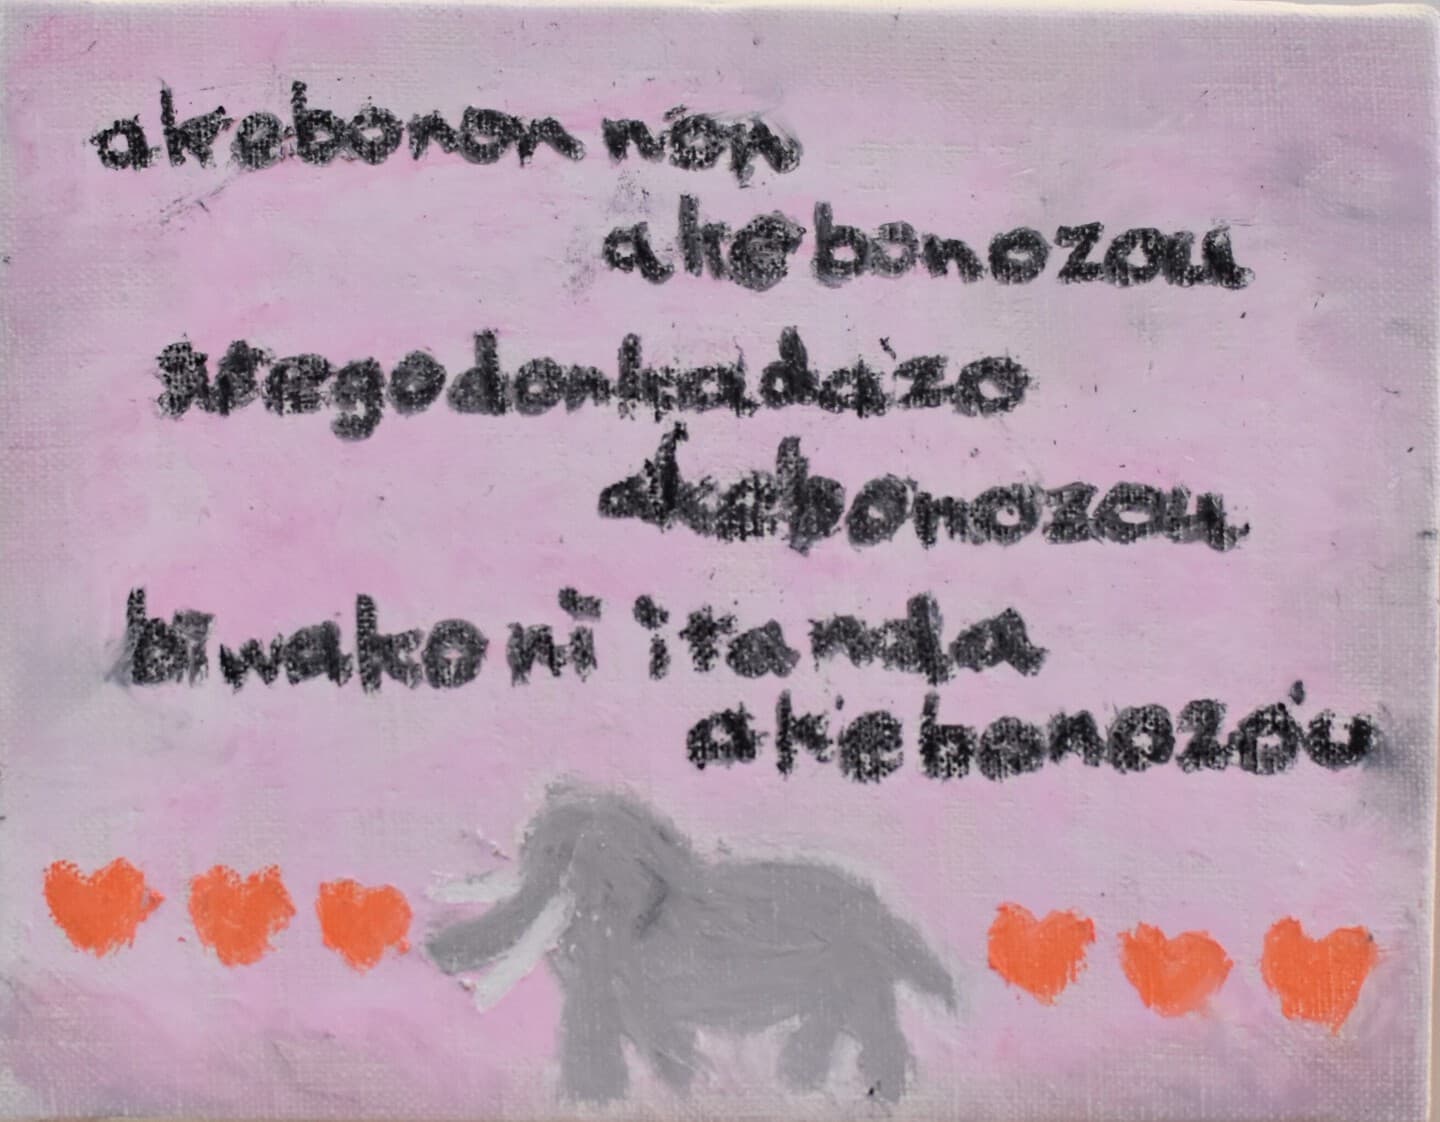 akebonon non
akebonozou
stegodonkadazo
akebonozou
biwakoni itanda
akebonozou